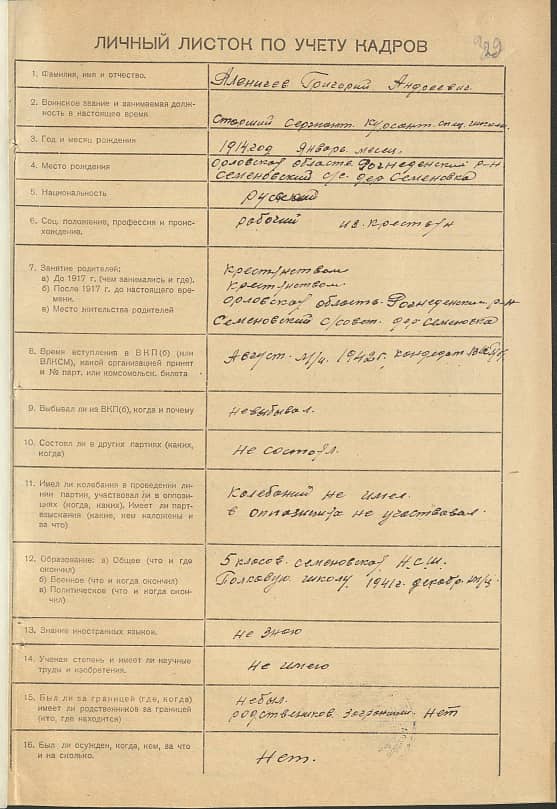 29
ЛИЧНЫЙ ЛИСТОК ПО УЧЕТУ КАДРОВ
1. Фамилия, имя и отчество.
Аленичев Григорий Андреевич
2. Воинское звание и занимаемая долж-
ность в настоящее время.
Старший Сержант. Курсант. спец. школы.
3. Год и месяц рождения
1914 год Январь месец.
4. Место рождения
Орловская область Рогнеденский р-н
Семеновский с/с. дер Семеновка
5. Национальность
русский
6. Соц. положение, профессия и проис-
хождение.
рабочий из крестьян
7. Занятие родителей:
а) До 1917 г. (чем занимались и где).
б) После 1917 г. до настоящего вре-
мени.
в) Место жительства родителей
крестьянством
крестьянством
Орловская область. Рогнеденский р-н
Семеновский с/совет. дер Семеновка
8. Время вступления в ВКП(б) (или
ВЛКСМ), какой организацией принят
и № парт. или комсомольск. билета
Август. м/ц. 1942 г. кондедат
9. Выбывал ли из ВКП(б), когда и почему
невыбывал.
10. Состоял ли в других партиях (каких,
когда)
не состоял.
11. Имел ли колебания в проведении ли-
нии партии, участвовал ли в оппози-
циях (когда, каких). Имеет ли парт-
взыскания (какие, кем наложены и
за что)
Колебаний не имел.
в оппозициях не участвовал.
12. Образование: а) Общее (что и где
окончил)
б) Военное (что и когда окончил)
в) Политическое (что и когда окон-
чил)
5 класов. семеновской Н.С.Ш.
Полковую школу 1941 г. декабрь м/ц.
13. Знание иностранных языков.
не знаю
14. Ученая степень и имеет ли научные
труды и изобретения.
не имею
15. Был ли за границей (где, когда)
имеет ли родственников за границей
(кто, где находится)
небыл.
родственников заграницей нет
16. Был ли осужден, когда, кем, за что
и на сколько.
Нет.